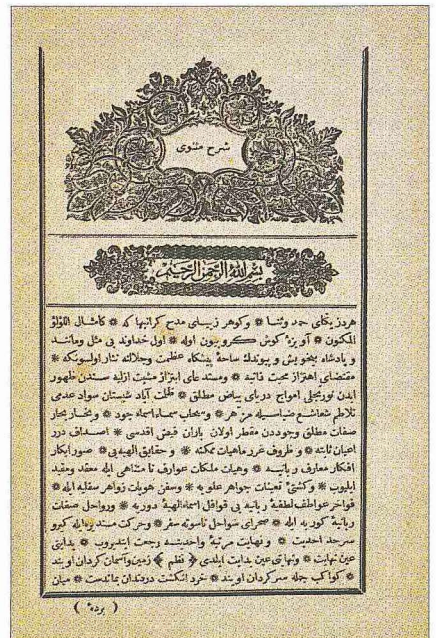 شرح مثنوی
بسم الله الرحمن الرحیم
هر دز یکتای حمد وثنا ❊ وکوهر زیبای مدح کرانبها که ❊ کامثال اللؤلؤ
المکنون ❊ آویزهٔ کوش کروبیون اوله ❊ اول خداوند بی مثل ومانند
و پادشاه بیخویش و پیوندك ساحهٔ پیشکاه عظمت وجلالنه نثار اولسونکه ❊
مقتضای اهتزاز محبت ذاتیه ❊ ومستدعای ابتزاز مشیت ازلیه سندن ظهور
ایدن نوربجلی امواج دریای بیاض مطلق ❊ ظلمت آباد شبستان سواد عدمی
تلاطم شعاشع ضیاسیله هر ❊ وسحاب سماء اسماء جود ❊ وبخار بحار
صفات مطلق وجوددن مقطر اولان باران فیض اقدسی ❊ اصداف درر
اعیان ثابته ❊ و ظروف غرر ماهیات ممکنه ❊ و حقایق الهیه یی ❊ صور ابکار
افکار معارف ربانیه ❊ وهیات ملکات عوارف نا متناهی ایله معقد ومقید
ایلیوب ❊ وکشتی تعینات جواهر علویه ❊ وسفن هویات زواهر سفلیه ایله ❊
قوافل عواطف لطفیهٔ ربانیه یی قوافل اسماء الهیهٔ دوریه ❊ ورواحل صفات
ربانیهٔ کوریه ایله ❊ صحرای سواحل ناسوته سفر ❊ وحرکت ایله کیرو
سرحد احدیت ❊ و نهایت مرتبهٔ واحدیته رجعت ایتدیروب ❊ بدایتی
عین نهایت ❊ ونهایتی عین بدایت ایلدی ﴿ نظم ﴾ زمین وآسمان کردان اویند
❊ کواکب جمله سرکردان اویند ❊ خرد انکشت دردندان بماندست ❊ میان
( برده )